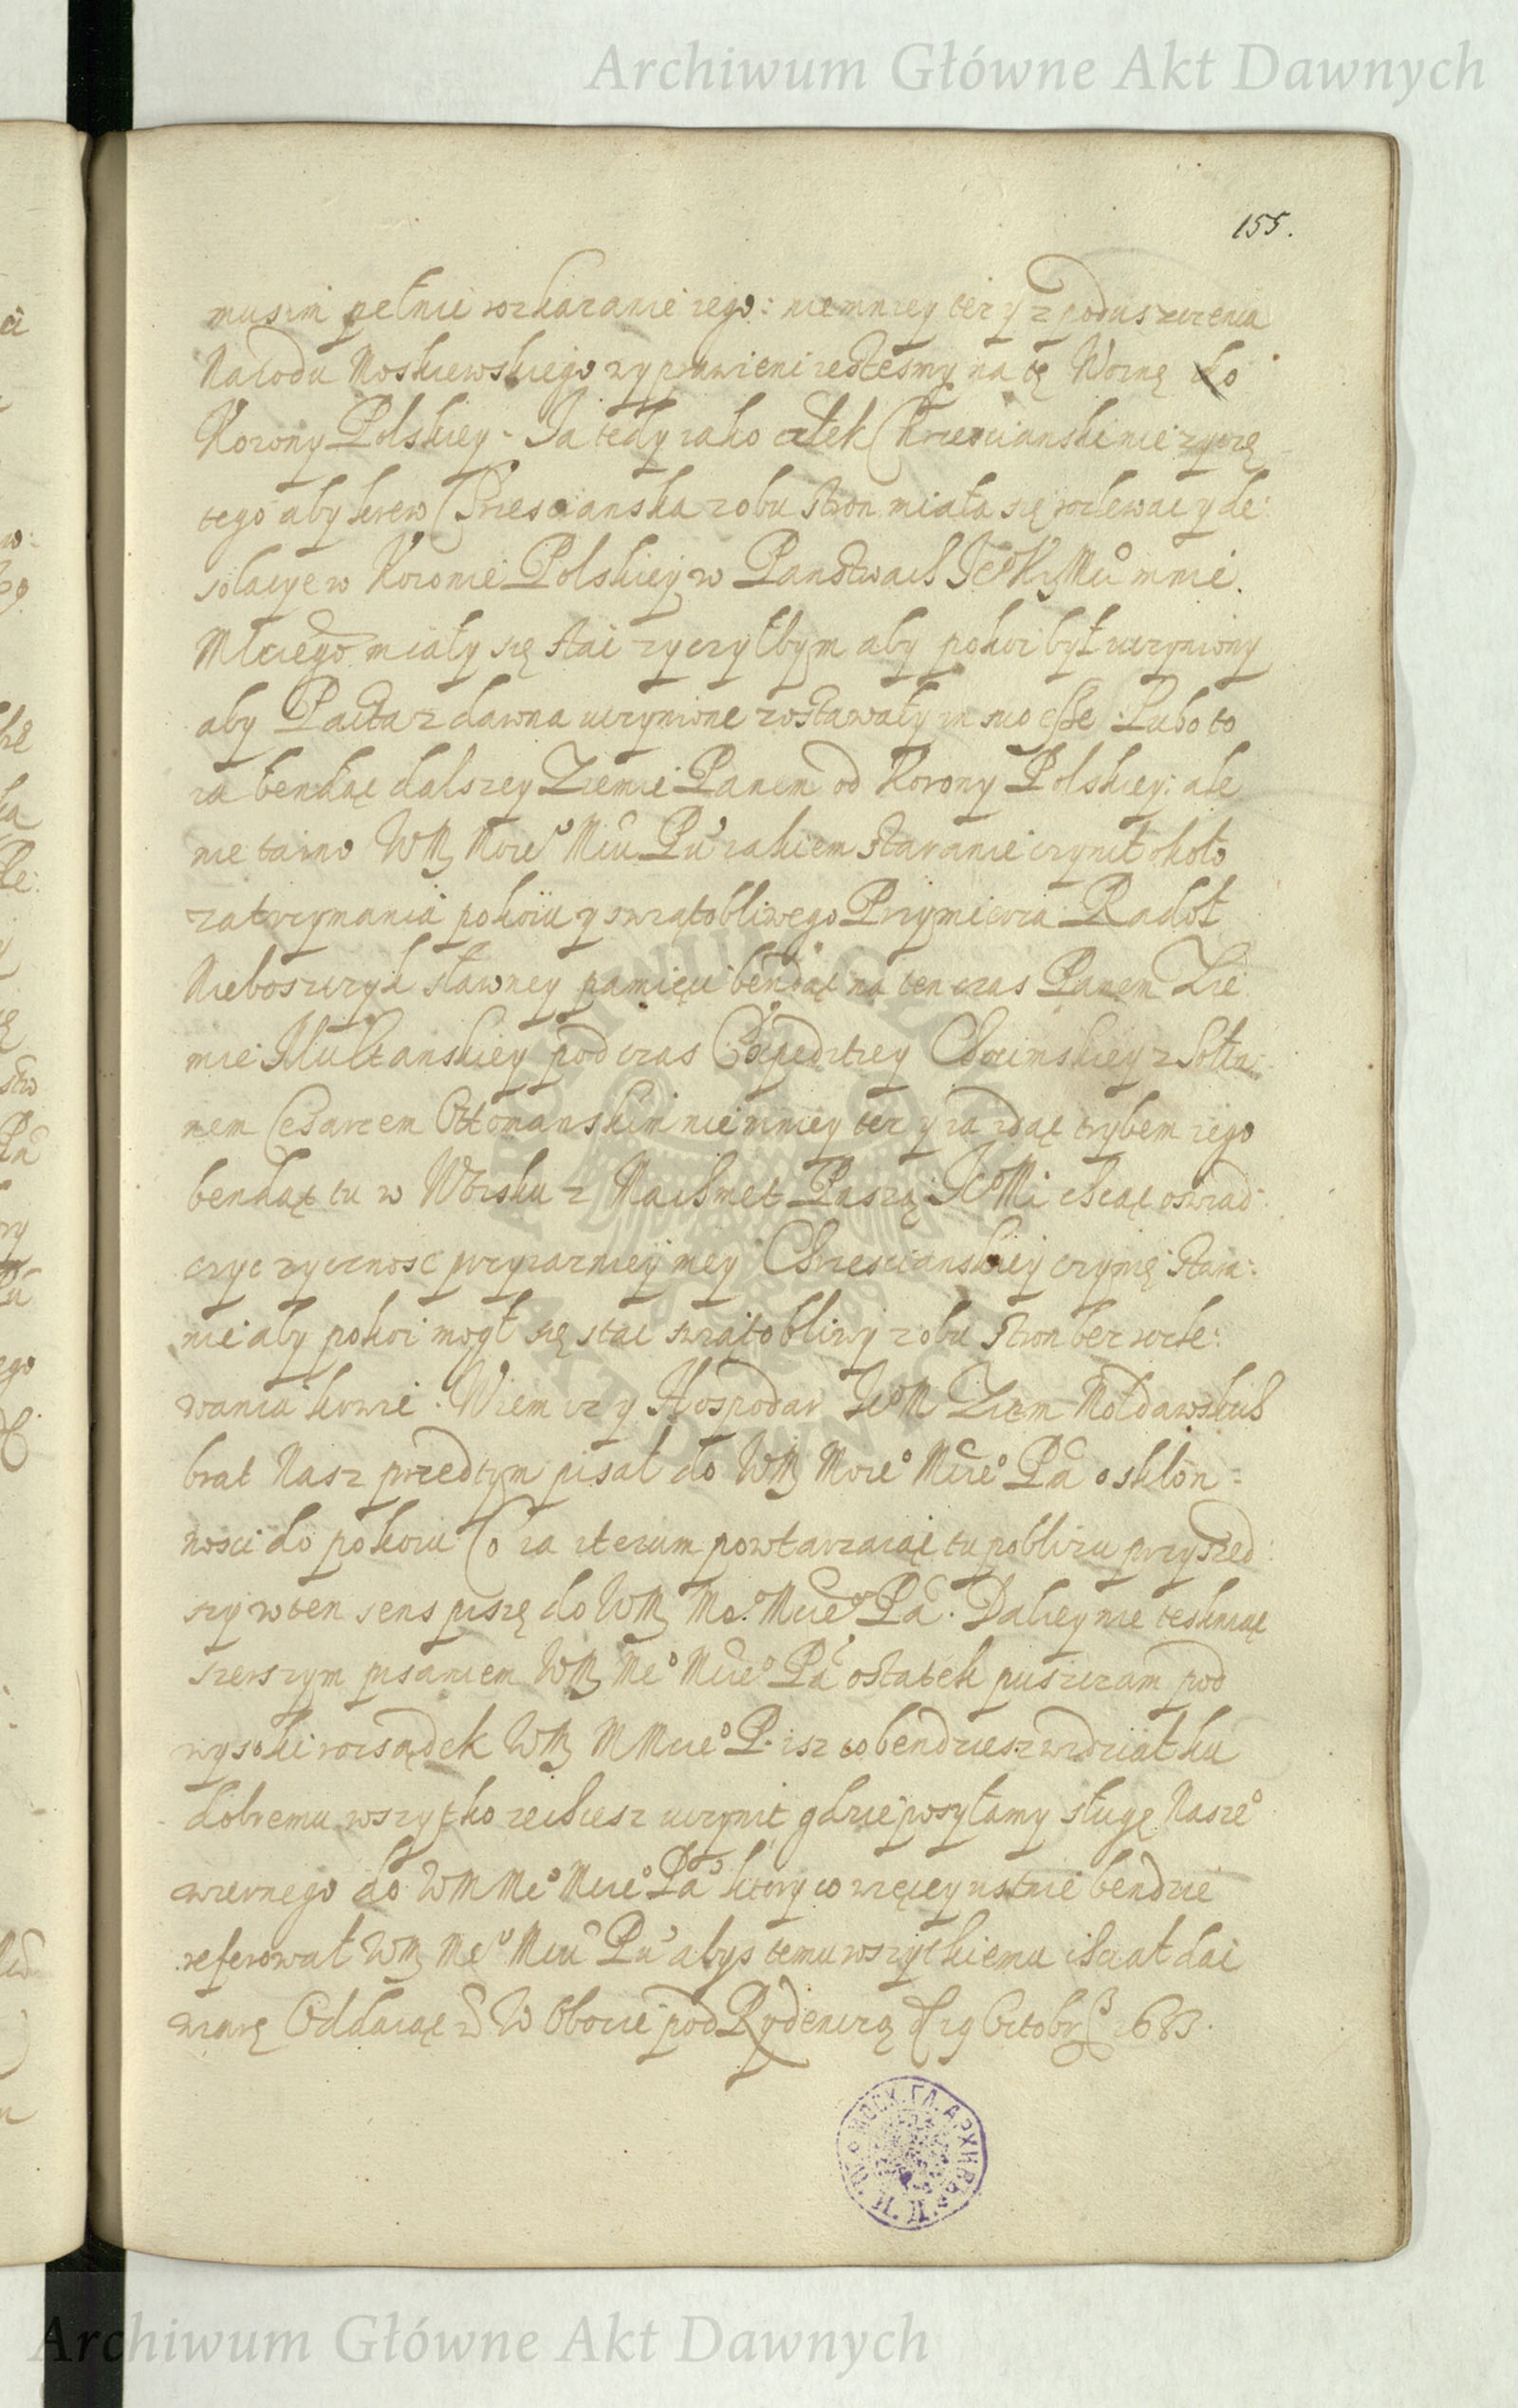 Archiwum Główne Akt Dawnych
155.
musim pełnic rozkazanie iego: niemniey tez y z poduszczenia
Narodu Moskiewskiego wyprawieni iestesmy na tę Woinę do
Korony Polskiey. Ja tedy iako człek Chrzescianski nie zyczę
tego aby krew Chrzescianska z obu stron miała się rozlewac y de:
solacye w Koronie Polskiey w Panstwach
Młciego miały się stac zyczyłbym aby pokoi był uczyniony
aby Pacta z dawna uczynione zostawały in suo esse. Lubo to
ia bendąc dalszey Ziemie Panem od Korony Polskiey: ale
nie taino WM Mciu Pu iakiem staranie czynił około
zatrzymania pokoiu y swiątobliwego Przymierza Raduł
Nieboszczyk sławney pamięci bendąc na ten czas Panem Zie
mie Multanskiey pod czas Expeditiey Chocimskiey z Sołta:
nem Cesarzem Ottomanskim niemniey tez y ia idąc trybem iego
bendąc tu w Woisku z Machmet Paszą chcąc oswiad:
czyc zycznosc przyiazniey mey Chrzescianskiey czynię stara:
nie aby pokoi mogł się stac swiątobliwy z obu stron bez rozle:
wania krwie. Wiem iz y Hospodar JeoM Ziem Mołdawskich
brat Nasz przedtym pisał do WM Moieo Mcieo Pa o skłon=
nosci do pokoiu Co ia iterum powtarzaiąc tu pobliżu przyszed:
szy w ten sens piszę do WM Mo. Mcieo Pa. Daliey nie teskniąc
szerszym pisaniem WM Meo Mcieo Pa ostatek puszczam pod
wysoki rozsądek WM M Mcieo P. isz co bendziesz widział ku
dobremu wszytko zechcesz uczynic gdzie posyłamy sługę Naszeo
wiernego do WM Meo Mcieo Pa ktory co więcey ustnie bendzie
referował WM Meo Mciu Pu abys temu wszytkiemu chciał dac
wiarę Oddaiąc W Obozie pod 1683.
Archiwum Główne Akt Dawnych